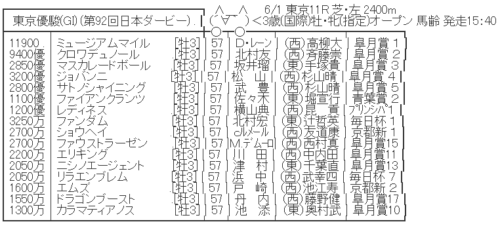 東京優駿(GI) (第92回日本ダービー) (´▽`) <3歳(国際)牡・牝(指定)オープン 馬齢 発走15:40
6/1 東京11R 芝・左 2400m
11900 ミュージアムマイル [牡3] 57 D・レーン (西)高柳大 皐月賞 1
9400優 クロワデュノール [牡3] 57 北村友 (西)斉藤崇 皐月賞 2
2850優 マスカレードボール [牡3] 57 坂井瑠 (東)手塚貴 皐月賞 3
3200優 ジョバンニ [牡3] 57 松 山 (西)杉山晴 皐月賞 4
2800優 サトノシャイニング [牡3] 57 武 豊 (西)杉山晴 皐月賞 5
1100優 ファイアンクランツ [牡3] 57 佐々木 (東)堀宣行 青葉賞 2
1200優 レディネス [牡3] 57 横山典 (西)昆 貢 プリンシパ 1
3250万 ファンダム [牡3] 57 北村宏 (東)辻哲英 毎日杯 1
2700万 ショウヘイ [牡3] 57 cルメール (西)友道康 京都新 1
2700万 ファウストラーゼン [牡3] 57 M.デムーロ (西)西村真 皐月賞15
2200万 エリキング [牡3] 57 川 田 (西)中内田 皐月賞11
2050万 ニシノエージェント [牡3] 57 津 村 (東)千葉直 皐月賞13
2050万 リラエンブレム [牡3] 57 浜 中 (西)武幸四 毎日杯 7
1600万 エムズ [牡3] 57 戸 崎 (西)池江寿 京都新 2
1550万 ドラゴンブースト [牡3] 57 丹 内 (西)藤野健 皐月賞17
1300万 カラマティアノス [牡3] 57 池 添 (東)奥村武 皐月賞10